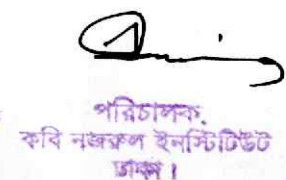 পরিচালক,
কবি নজরুল ইনস্টিটিউট
ঢাকা।